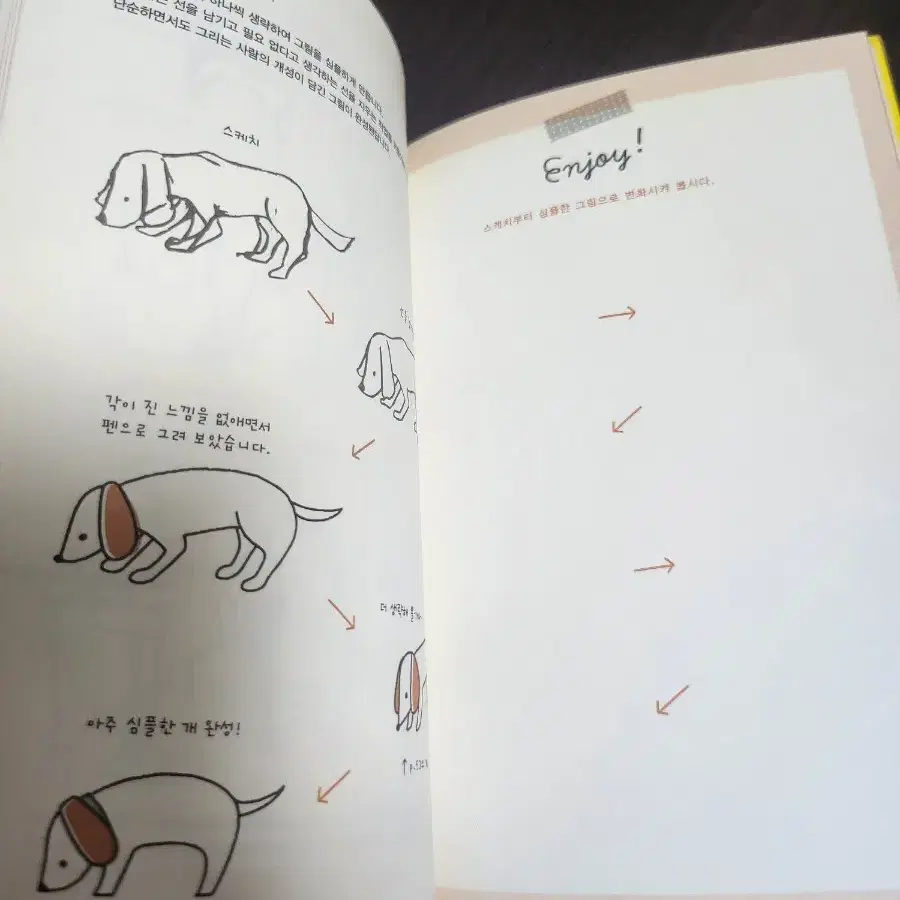 하나씩 생략하여 그림을 심플하게 만듭니다.
선을 남기고 필요 없다고 생각하는 선을 지우는 작업을
단순하면서도 그리는 사람의 개성이 담긴 그림이 완성됩니다
스케치
각이 진 느낌을 없애면서
펜으로 그려 보았습니다.
더 생략해
아주 심플한 개 완성!
Enjoy!
스케치부터 심플한 그림으로 변화시켜 봅시다.